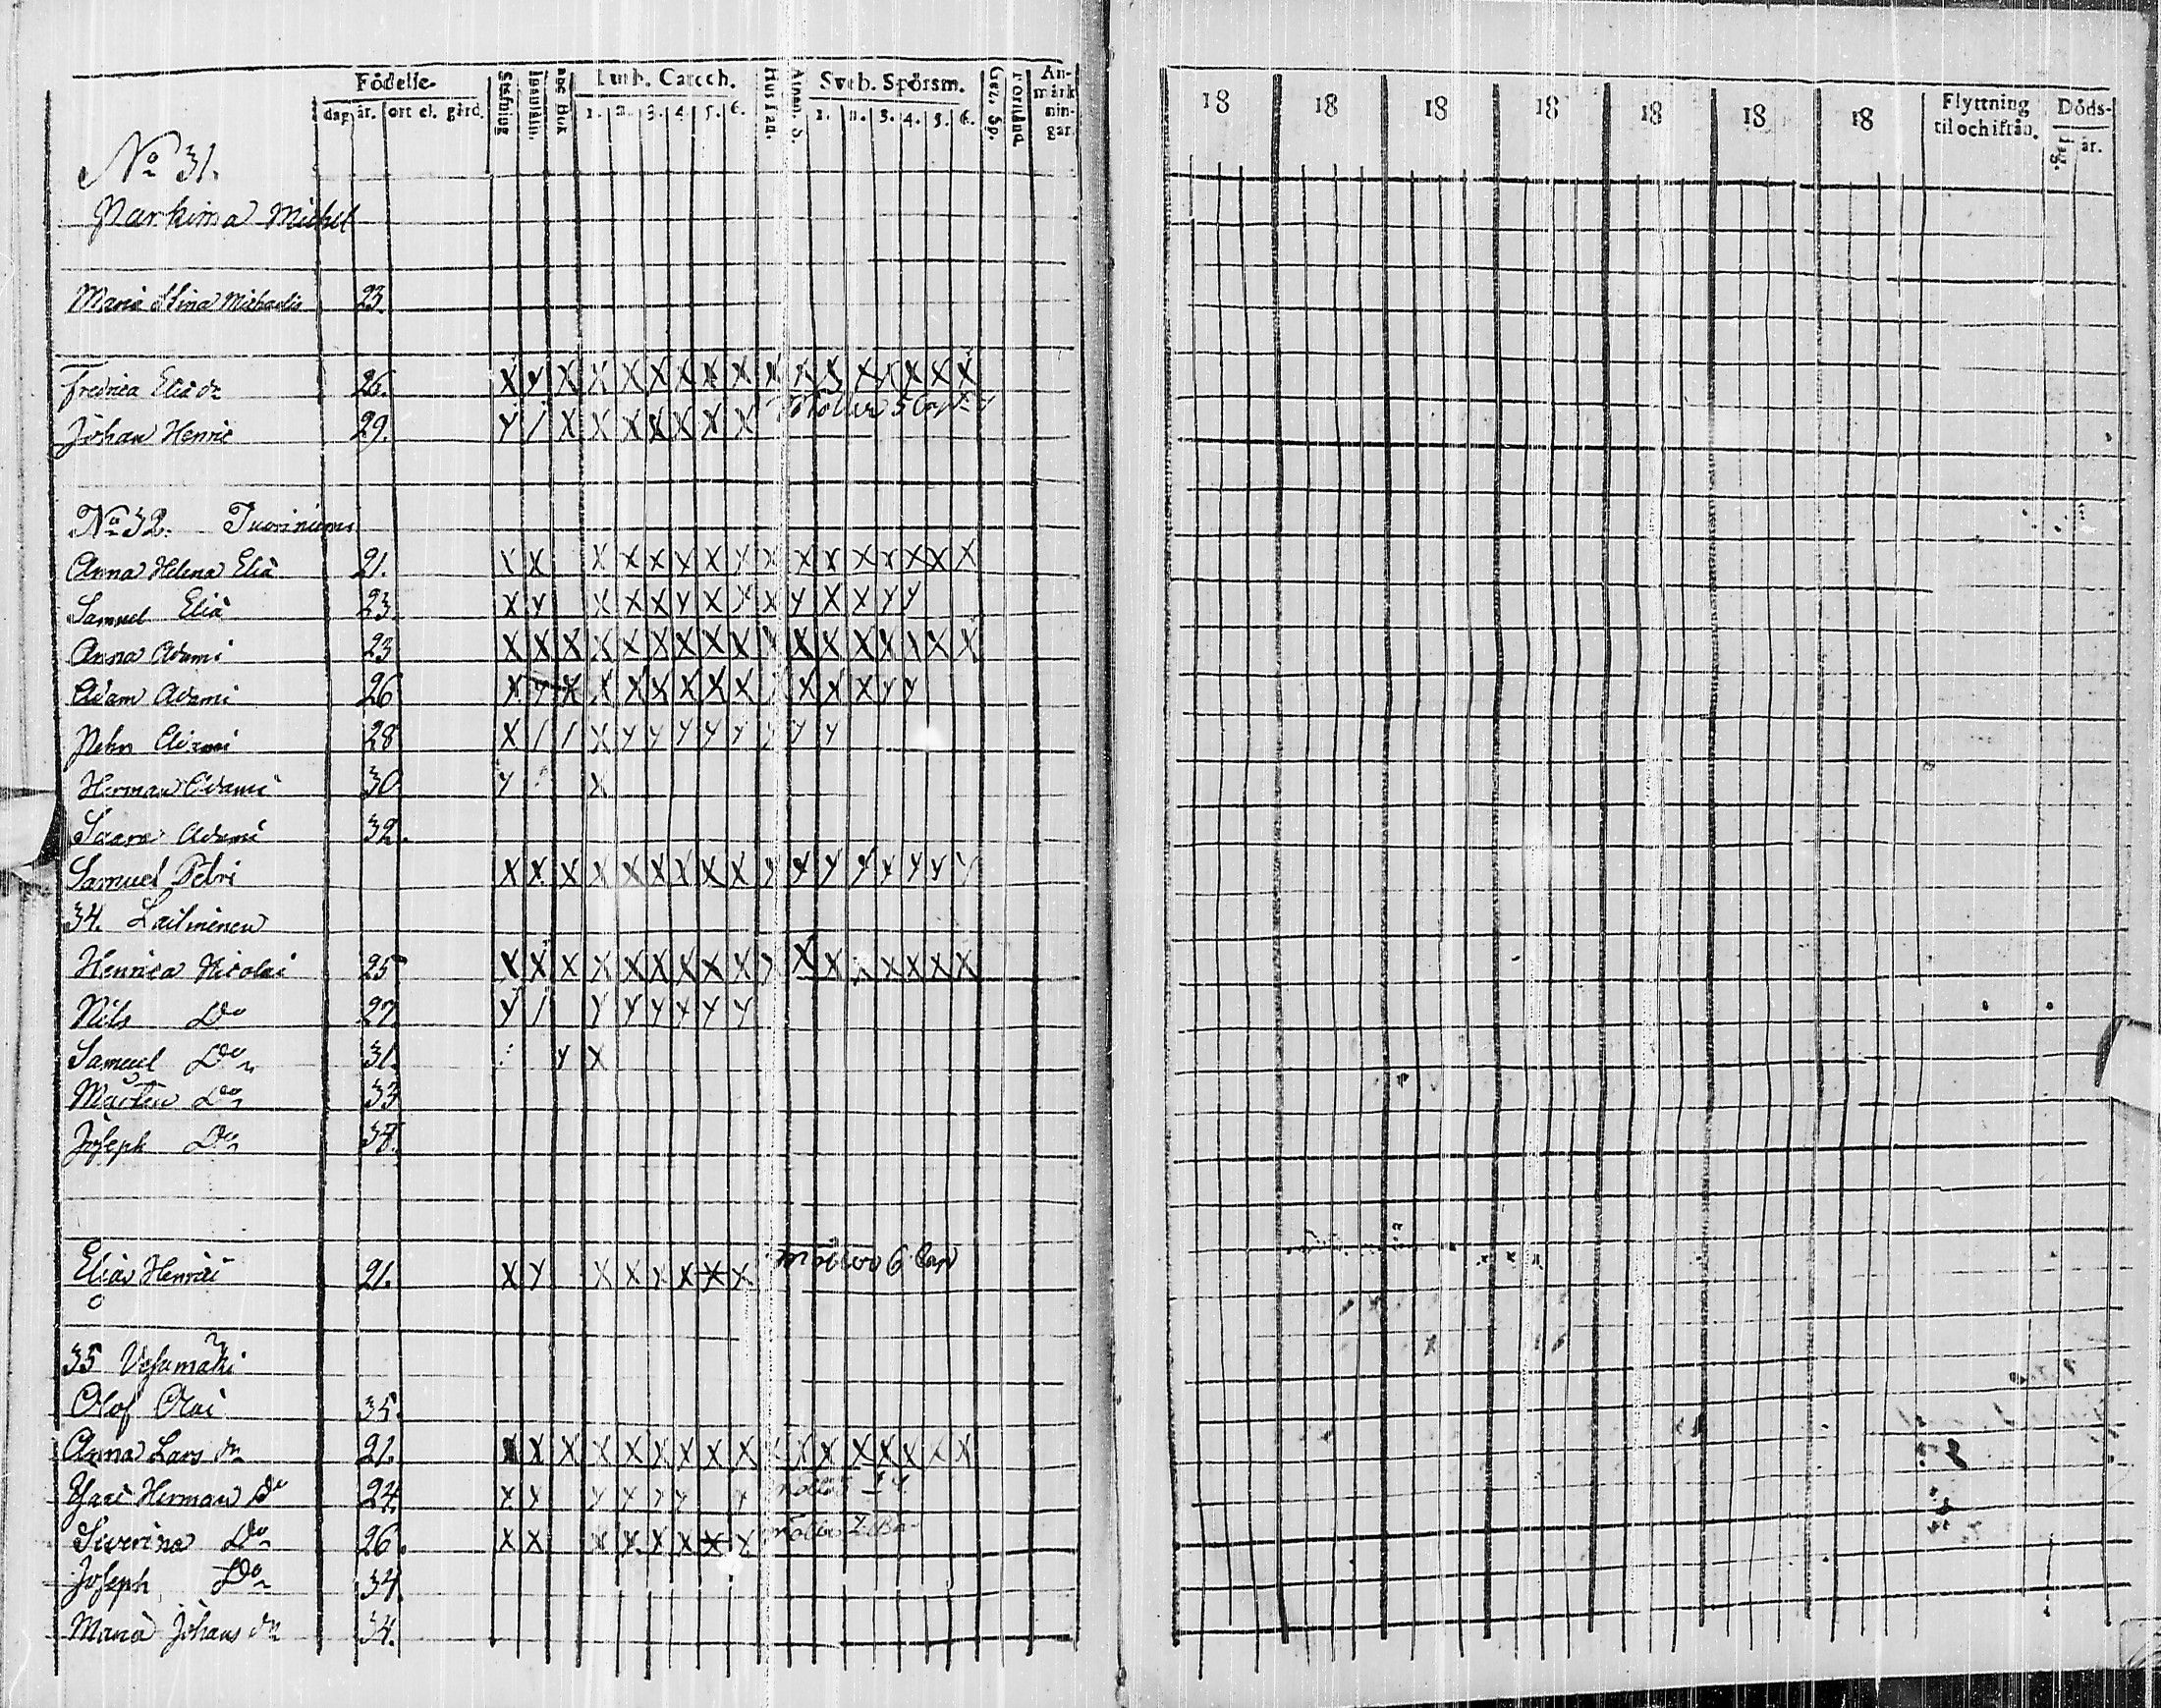 Födelse-
dag år. ort el. gård.
Stafning
abc Bok
Luth. Catech.
1. 2. 3. 4. 5. 6.
Sveb. Spörsm.
1. 2. 3. 4. 5. 6.
Gez. Sp.
Förstånd
An-
märk
nin-
gar.
18 18 18 18 18 18 18
Flyttning
til och ifrån.
Döds-
dag. år.
No 31.
Parkima Michel
Maria Stina Michaelis 23.
Fredrica Eliæ dr 26. X y X X X X X X X X X X X X X X X
Johan Henric 29. y / X X X X X X X
No 32.
Anna Helena Eliæ 21. Y X X X X X X X X X X X X X X X
Samuel Eliæ 23. X y X X X y X X X y X X y y
Anna Adami 23 X X X X X X X X X X X X X X X X
Adam Adami 26 X y X X X X X X X X X X y y
Petr Adami 28 X / / X y y y y y y y y
Herman Adami 30 y X
Saara Adami 32.
Samuel Petri X X X X X X X X X y y y y y y y y
34. Laitminen
Henrica Nicolai 25 X X X X X X X X X y X X X X X X
Nils Do 27. y / y y y y y y
Samuel Do 31. y X
Mårten Do 33
Joseph Do
Elias Henrici 21. X y X X X X X X 6 Cap
35 Vesamäki
Olof Olai 35.
Anna Lars dr 21. X X X X X X X X X X X X X X X X
Herman Do 24. X y y y y y y
Siverina Do 26. X X X X X X X X
Joseph Do 34.
Maria Johans dr 34.